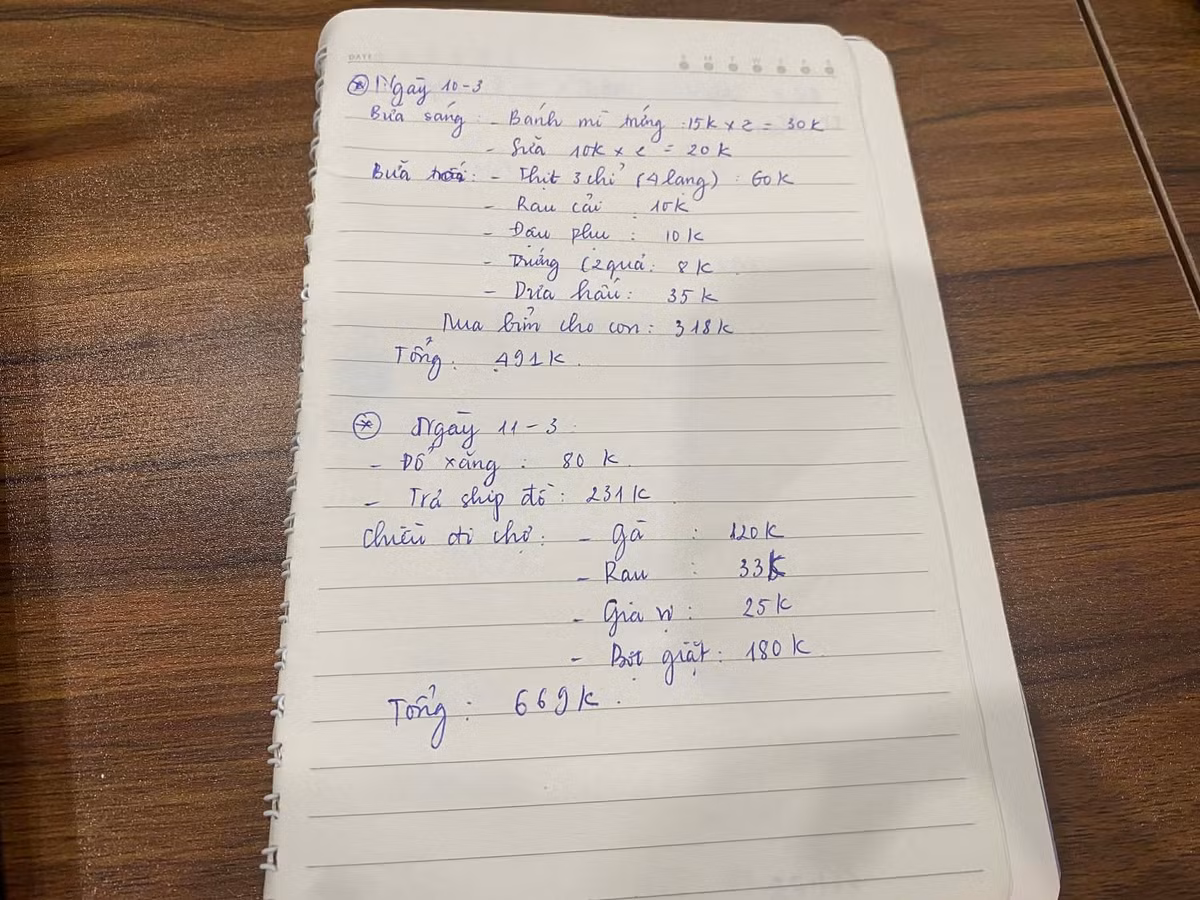 DATE
S M T W T F S
Ngày 10-3
Bữa sáng: - Bánh mì trứng: 15k x 2 = 30k
- Sữa 10k x 2 = 20k
Bữa: - Thịt 3 chỉ (4 lạng): 60k
- Rau cải: 10k
- Đậu phụ: 10k
- Trứng (2 quả: 8k
- Dưa hấu: 35k
Mua bỉm cho con: 318k
Tổng: 491k.
Ngày 11-3:
- Đổ xăng: 80k.
- Trả ship đồ: 231k.
Chiều đi chợ: - Gà: 120k
- Rau: 33k
- Gia vị: 25k
- Bột giặt: 180k.
Tổng: 669k.